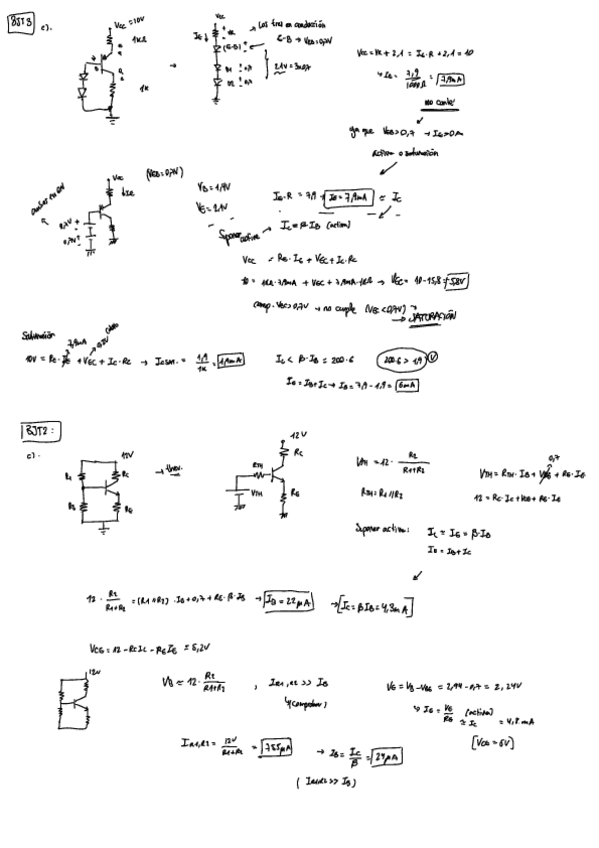 BJT3 c).
Vcc=10V
1kΩ
1K
Vcc
IE ↓
(E-B)
D1
D2
→ Los tres en conducción
E-B → VEB=0,7V
2,1V = 3x0,7
Vcc = VR + 2,1 = IE·R + 2,1 = 10
↳ IE = 7,9/1000Ω = 7,9mA
no corte
ya que VEB>0,7 → IE>0A
Activa o saturación
Vcc (VEB=0,7V)
VB=1,4V
VE=2,1V
IE·R = 7,9 → IE=7,9mA ≈ IC
Suponer activa → IC=β·IB (activa)
Vcc = RE·IE + VEC + IC·RC
10 = 1kΩ·7,9mA + VEC + 7,9mA·1kΩ → VEC = 10-15,8 = -5,8V
comp. VEC>0,7V → no cumple (VEC<0,7V)
→ SATURACIÓN
Saturación
7,9mA
10V = RE·IE + VEC + IC·RC → ICSAT. = 1,9/1K = 1,9mA
IC < β·IB = 200·6
200·6 > 1,9
IE = IB+IC → IB = 7,9 - 1,9 = 6mA
BJT2:
c).
12V
R1
RC
R2
RE
→ thev.
12V
RC
RTH
VTH
RE
VTH = 12· R2/R1+R2
RTH = R1//R2
0,7
VTH = RTH·IB + VBE + RE·IE
12 = RC·IC + VCE + RE·IE
Suponer activa:
IC ≈ IE = β·IB
IE = IB+IC
12 · R2/R1+R2 = (R1//R2)·IB + 0,7 + RE·β·IB → IB = 22μA → [IC=βIB=4,3mA]
VCE = 12 - RCIC - REIE = 5,2V
12V
VB ≈ 12· R2/R1+R2 , IR1,R2 >> IB
↳ (comprobar)
VE = VB - VBE = 2,94 - 0,7 = 2,24V
↳ IE = VE/RE ≈ IC (activa) = 4,8mA
[VCE = 5V]
IR1,R2 = 12V/R1+R2 = 785μA → IB = IC/β = 24μA
(IR1R2 >> IB)